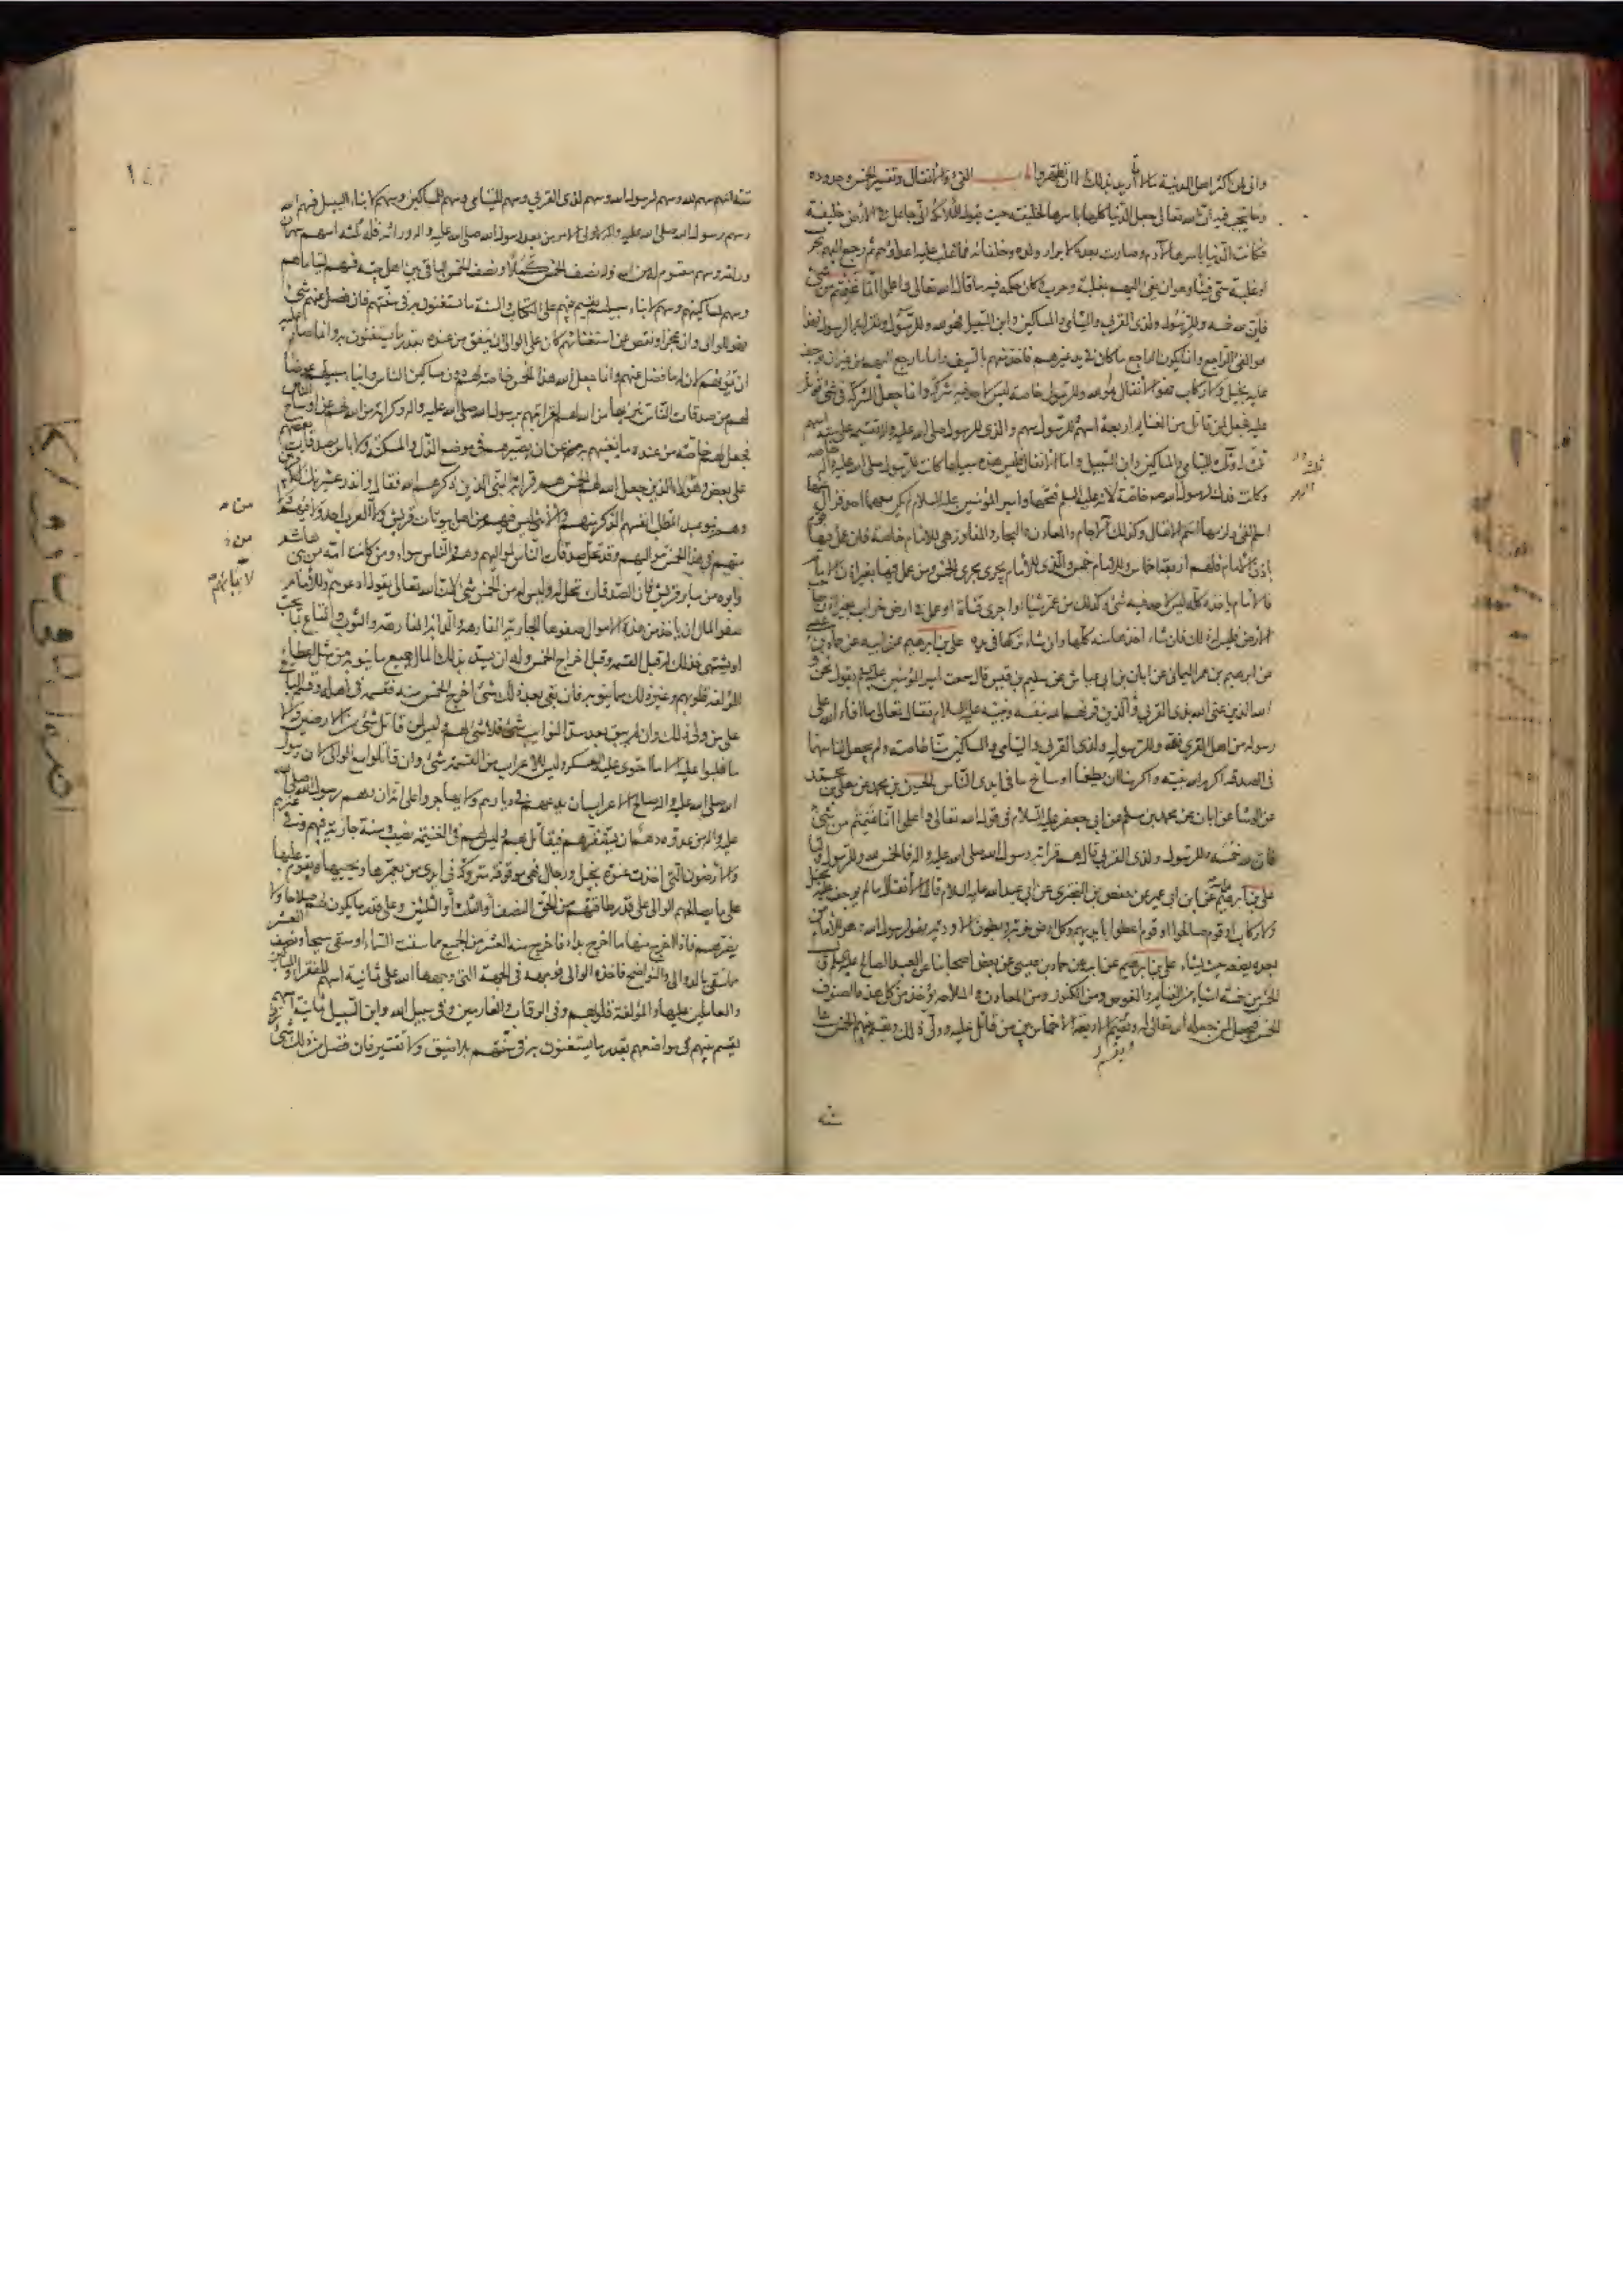 وان من اكثر اهل المدينة مالا اريد بذلك الا ان تطهروا باب الفىء والانفال وتفسير الخمس وحدوده
وما يجب فيه ان الله تعالى جعل الدنيا كلها باسرها لخليفته حيث يقول للملائكة انى جاعل فى الارض خليفة
فكانت الدنيا باسرها لآدم وصارت بعده لابرار ولده وخلفائه فما غلب عليه اعداؤهم ثم رجع اليهم بحرب
او غلبة سمى فيئا وهو ان يفىء اليهم بغلبة وحرب وكان حكمه فيه ما قال الله تعالى واعلموا انما غنمتم من شىء
فان لله خمسه وللرسول ولذى القربى واليتامى والمساكين وابن السبيل فهو لله وللرسول ولقرابة الرسول فهذا
هو الفىء الراجع وانما يكون الراجع ما كان فى يد غيرهم فاخذ منهم بالسيف واما ما رجع اليهم من غير ان يوجف
عليه بخيل ولا ركاب فهو الانفال هو لله وللرسول خاصة ليس لاحد فيه شركة وانما جعل الشركة فى شىء قوتل
عليه فجعل لمن قاتل من الغنايم اربعة اسهم وللرسول سهم والذى للرسول صلى الله عليه واله يقسمه على ستة اسهم
ثلثة له وثلثة لليتامى والمساكين وابن السبيل واما الانفال فليس هذه سبيلها كانت للرسول صلى الله عليه واله خاصة
وكانت فدك لرسول الله صلعم خاصة لانه عليه السلم فتحها وامير المؤمنين عليه السلام لم يكن معهما احد فزال عنها
اسم الفىء ولزمها اسم الانفال وكذلك الآجام والمعادن والبحار والمفاوز هى للامام خاصة فان عمل فيها قوم
باذن الامام فلهم اربعة اخماس وللامام خمس والذى للامام يجرى مجرى الخمس ومن عمل فيها بغير اذن الامام
فالامام ياخذه كله ليس لاحد فيه شىء وكذلك من عمر شيئا او اجرى قناة او عمل فى ارض خراب بغير اذن صاحب
الارض فليس له ذلك فان شاء اخذها منه كلها وان شاء تركها فى يده على بن ابرهيم عن ابيه عن حماد بن عيسى
عن ابرهيم بن عمر اليمانى عن ابان بن ابى عياش عن سليم بن قيس قال سمعت امير المؤمنين عليه السلم يقول نحن و
الله الذين عنى الله بذى القربى والذين قرنهم الله بنفسه ونبيه عليه السلام فقال تعالى ما افاء الله على
رسوله من اهل القرى فلله وللرسول ولذى القربى واليتامى والمساكين منا خاصة ولم يجعل لنا سهما
فى الصدقة اكرم الله نبيه واكرمنا ان يطعمنا اوساخ ما فى ايدى الناس الحسين بن محمد عن معلى بن محمد
عن الوشا عن ابان عن محمد بن مسلم عن ابى جعفر عليه السلام فى قول الله تعالى واعلموا انما غنمتم من شىء
فان لله خمسه وللرسول ولذى القربى قال هم قرابة رسول الله صلى الله عليه واله فالخمس لله وللرسول ولنا
على بن ابرهيم عن ابيه عن ابن ابى عمير عن حفص بن البخترى عن ابى عبد الله عليه السلام قال الانفال ما لم يوجف عليه بخيل
ولا ركاب او قوم صالحوا او قوم اعطوا بايديهم وكل ارض خربة وبطون الاودية فهو لرسول الله وهو للامام من
بعده يضعه حيث يشاء على بن ابرهيم عن ابيه عن حماد بن عيسى عن بعض اصحابنا عن العبد الصالح عليه السلم ق
الخمس من خمسة اشياء من الغنايم والغوص ومن الكنوز ومن المعادن والملاحة يؤخذ من كل هذه الصنوف
الخمس فيجعل لمن جعله الله تعالى له ويقسم الاربعة الاخماس بين من قاتل عليه وولى ذلك ويقسم بينهم الخمس على
ثلثة
ستة
١٤٦
ستة اسهم سهم لله وسهم لرسول الله وسهم لذى القربى وسهم لليتامى وسهم للمساكين وسهم لابناء السبيل فسهم الله
وسهم رسول الله صلى الله عليه واله لاولى الامر من بعد رسول الله صلى الله عليه واله وراثة فله ثلثة اسهم سهمان
وراثة وسهم مقسوم له من الله وله نصف الخمس كملا ونصف الخمس الباقى بين اهل بيته فسهم ليتاماهم
وسهم لمساكينهم وسهم لابناء سبيلهم يقسم بينهم على الكتاب والسنة ما يستغنون به فى سنتهم فان فضل عنهم شىء
فهو للوالى وان عجز او نقص عن استغنائهم كان على الوالى ان ينفق من عنده بقدر ما يستغنون به وانما صار عليه
ان يمونهم لان له ما فضل عنهم وانما جعل الله هذا الخمس خاصة لهم دون مساكين الناس وابناء سبيلهم عوضا
لهم من صدقات الناس تنزيها من الله لهم لقرابتهم برسول الله صلى الله عليه واله وكرامة من الله لهم عن اوساخ الناس
فجعل لهم خاصة من عنده ما يغنيهم به عن ان يصيرهم فى موضع الذل والمسكنة ولا باس بصدقات بعضهم
على بعض وهؤلاء الذين جعل الله لهم الخمس هم قرابة النبى الذين ذكرهم الله فقال وانذر عشيرتك الاقربين
وهم بنو عبد المطلب انفسهم الذكر منهم والانثى ليس فيهم من اهل بيوتات قريش ولا من العرب احد ولا فيهم ولا
منهم فى هذا الخمس من مواليهم وقد تحل صدقات الناس لمواليهم وهم والناس سواء ومن كانت امه من بنى هاشم
وابوه من ساير قريش فان الصدقات تحل له وليس له من الخمس شىء لان الله تعالى يقول ادعوهم وللامام
صفو المال ان ياخذ من هذه الاموال صفوها الجارية الفارهة والدابة الفارهة والثوب والمتاع بما يحب
او يشتهى فذلك له قبل القسمة وقبل اخراج الخمس وله ان يسد بذلك المال جميع ما ينوبه من مثل اعطاء
المؤلفة قلوبهم وغير ذلك مما ينوبه فان بقى بعد ذلك شىء اخرج الخمس منه فقسمه فى اهله وقسم الباقى
على من ولى ذلك وان لم يبق بعد سد النوايب شىء فلا شىء لهم وليس لمن قاتل شىء من الارضين ولا
ما غلبوا عليه الا ما احتوى عليه العسكر وليس للاعراب من القسمة شىء وان قاتلوا مع الوالى لان رسول
الله صلى الله عليه واله صالح الاعراب ان يدعهم فى ديارهم ولا يهاجروا على انه ان دهم رسول الله صلى الله
عليه واله من عدوه دهم ان يستنفرهم فيقاتل بهم وليس لهم فى الغنيمة نصيب وسنته جارية فيهم وفى غيرهم
والارضون التى اخذت عنوة بخيل ورجال فهى موقوفة متروكة فى ايدى من يعمرها ويحييها ويقوم عليها
على ما يصالحهم الوالى على قدر طاقتهم من الحق النصف او الثلث او الثلثين وعلى قدر ما يكون لهم صلاحا ولا
يضرهم فاذا اخرج منها ما اخرج بدا فاخرج منه العشر من الجميع مما سقت السماء او سقى سيحا ونصف العشر
مما سقى بالدوالى والنواضح فاخذه الوالى فوجهه فى الجهة التى وجهها الله على ثمانية اسهم للفقراء والمساكين
والعاملين عليها والمؤلفة قلوبهم وفى الرقاب والغارمين وفى سبيل الله وابن السبيل ثمانية اسهم
يقسم بينهم فى مواضعهم بقدر ما يستغنون به فى سنتهم بلا ضيق ولا تقتير فان فضل من ذلك شىء
من
من
لابائهم